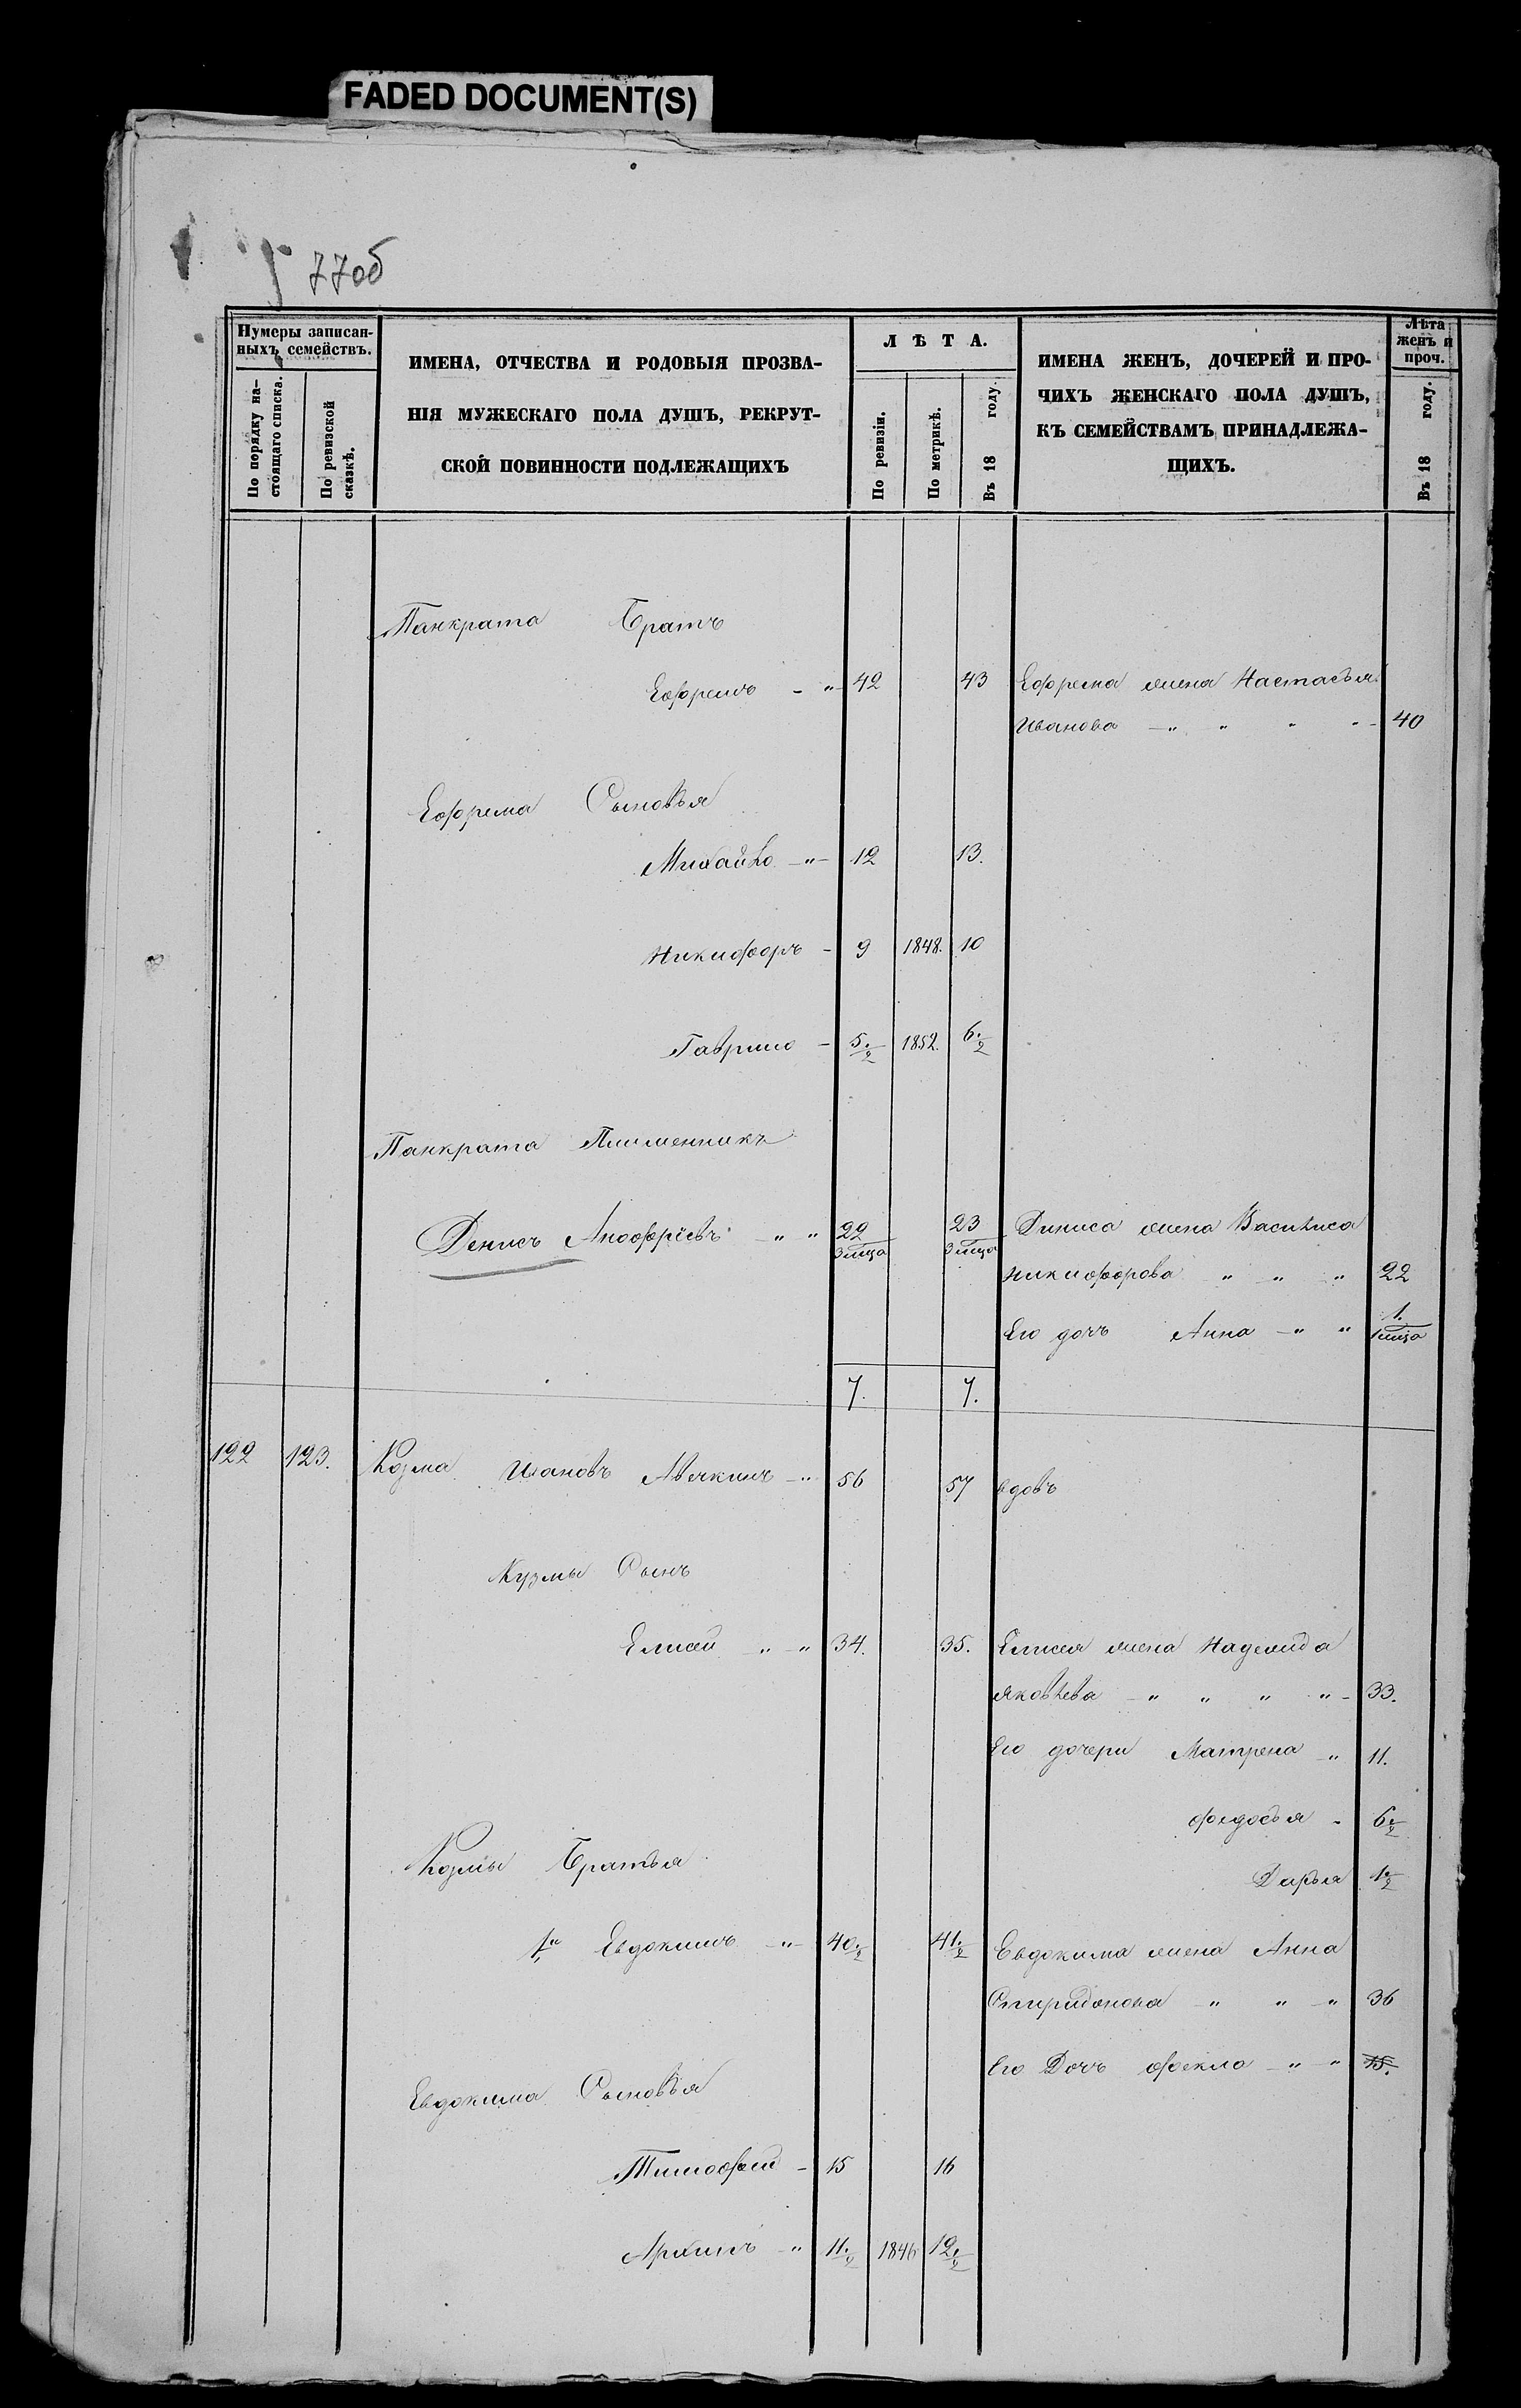 FADED DOCUMENT(S)
77об
Нумеры записан-
ныхъ семействъ.
По порядку на-
стоящаго списка.
По ревизской
сказкѣ.
ИМЕНА, ОТЧЕСТВА И РОДОВЫЯ ПРОЗВА-
НІЯ МУЖЕСКАГО ПОЛА ДУШЪ, РЕКРУТ-
СКОЙ ПОВИННОСТИ ПОДЛЕЖАЩИХЪ
ЛѢТА.
По ревизіи.
По метрикѣ.
Въ 18 году.
ИМЕНА ЖЕНЪ, ДОЧЕРЕЙ И ПРО-
ЧИХЪ ЖЕНСКАГО ПОЛА ДУШЪ,
КЪ СЕМЕЙСТВАМЪ ПРИНАДЛЕЖА-
ЩИХЪ.
Лѣта
женъ и
проч.
Въ 18 году.
Панкрата Братъ
Ефремъ - " - 42 43 Ефрема жена Настасья
Иванова - " " " - 40
Ефрема Сыновья
Михайло - " - 12 13.
Никифоръ - 9 1848. 10
Гаврило - 5 ./2 1852. 6 ./2
Панкрата Племенникъ
Денисъ Анофріевъ - " " 22 23 Диниса жена Василиса
3 мца 3 мца
Никифорова " - " - " 22
Его дочь Анна - " " 1.
1 мца
7. 7.
122 123. Козма Ивановъ Авечкинъ - " 56 57 вдовъ
Кузмы Сынъ
Елисей " - " 34. 35. Елисея жена Надежда
Яковлева - " " " " - 33.
Его дочери Матрена - " 11.
Федосья - 6 ./2
Козмы Братья
Дарья 1 ./2
1й Евдокимъ - " - 40 ./2 41 ./2 Евдокима жена Анна
Спиридонова - " " - " 36
Его Дочь Фекла - " - " 15.
Евдокима Сыновья
Тимофей - 15 16
Архипъ - " 11 ./2 1846 12 ./2